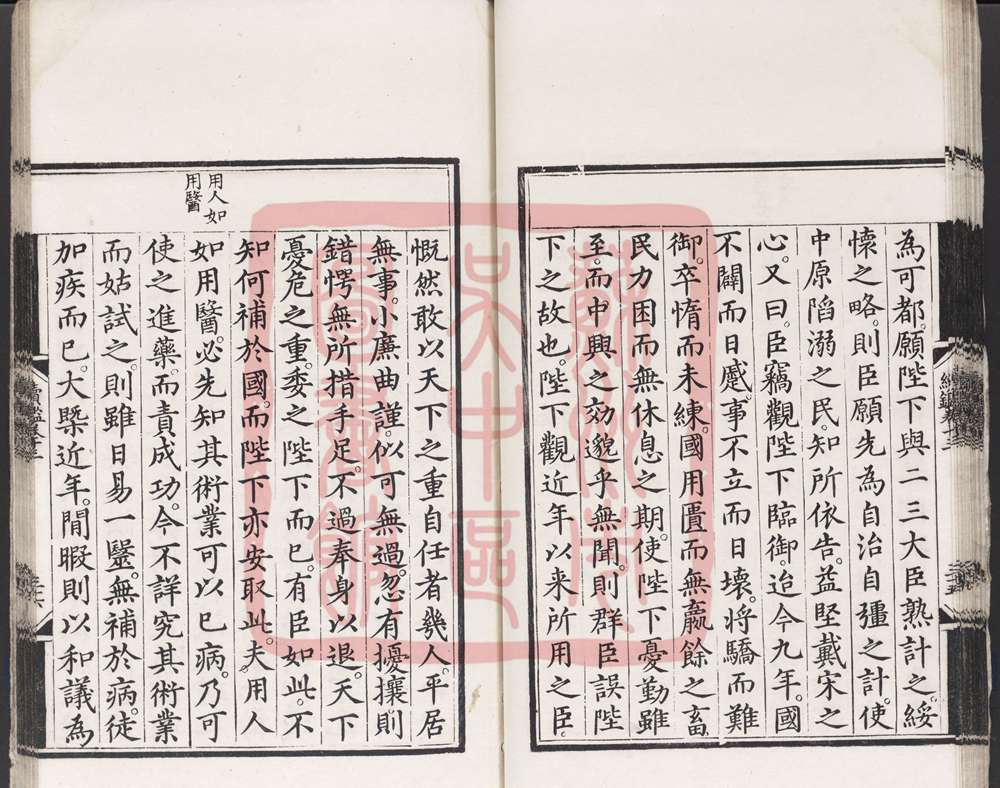 為可都。願陛下與二三大臣熟計之。綏
懷之略。則臣願先為自治自彊之計。使
中原陷溺之民。知所依告。益堅戴宋之
心。又曰。臣竊觀陛下臨御。迨今九年。國
不闢而日蹙。事不立而日壞。將驕而難
御。卒惰而未練。國用匱而無贏餘之畜。
民力困而無休息之期。使陛下憂勤雖
至。而中興之効邈乎無聞。則群臣誤陛
下之故也。陛下觀近年以来所用之臣。
慨然敢以天下之重自任者幾人。平居
無事。小廉曲謹。似可無過。忽有擾攘。則
錯愕無所措手足。不過奉身以退。天下
憂危之重。委之陛下而已。有臣如此。不
知何補於國。而陛下亦安取此。夫用人
如用醫。必先知其術業可以已病。乃可
使之進藥。而責成功。今不詳究其術業
而姑試之。則雖日易一毉。無補於病。徒
加疾而已。大槩近年。閒暇則以和議為
用人如
用醫